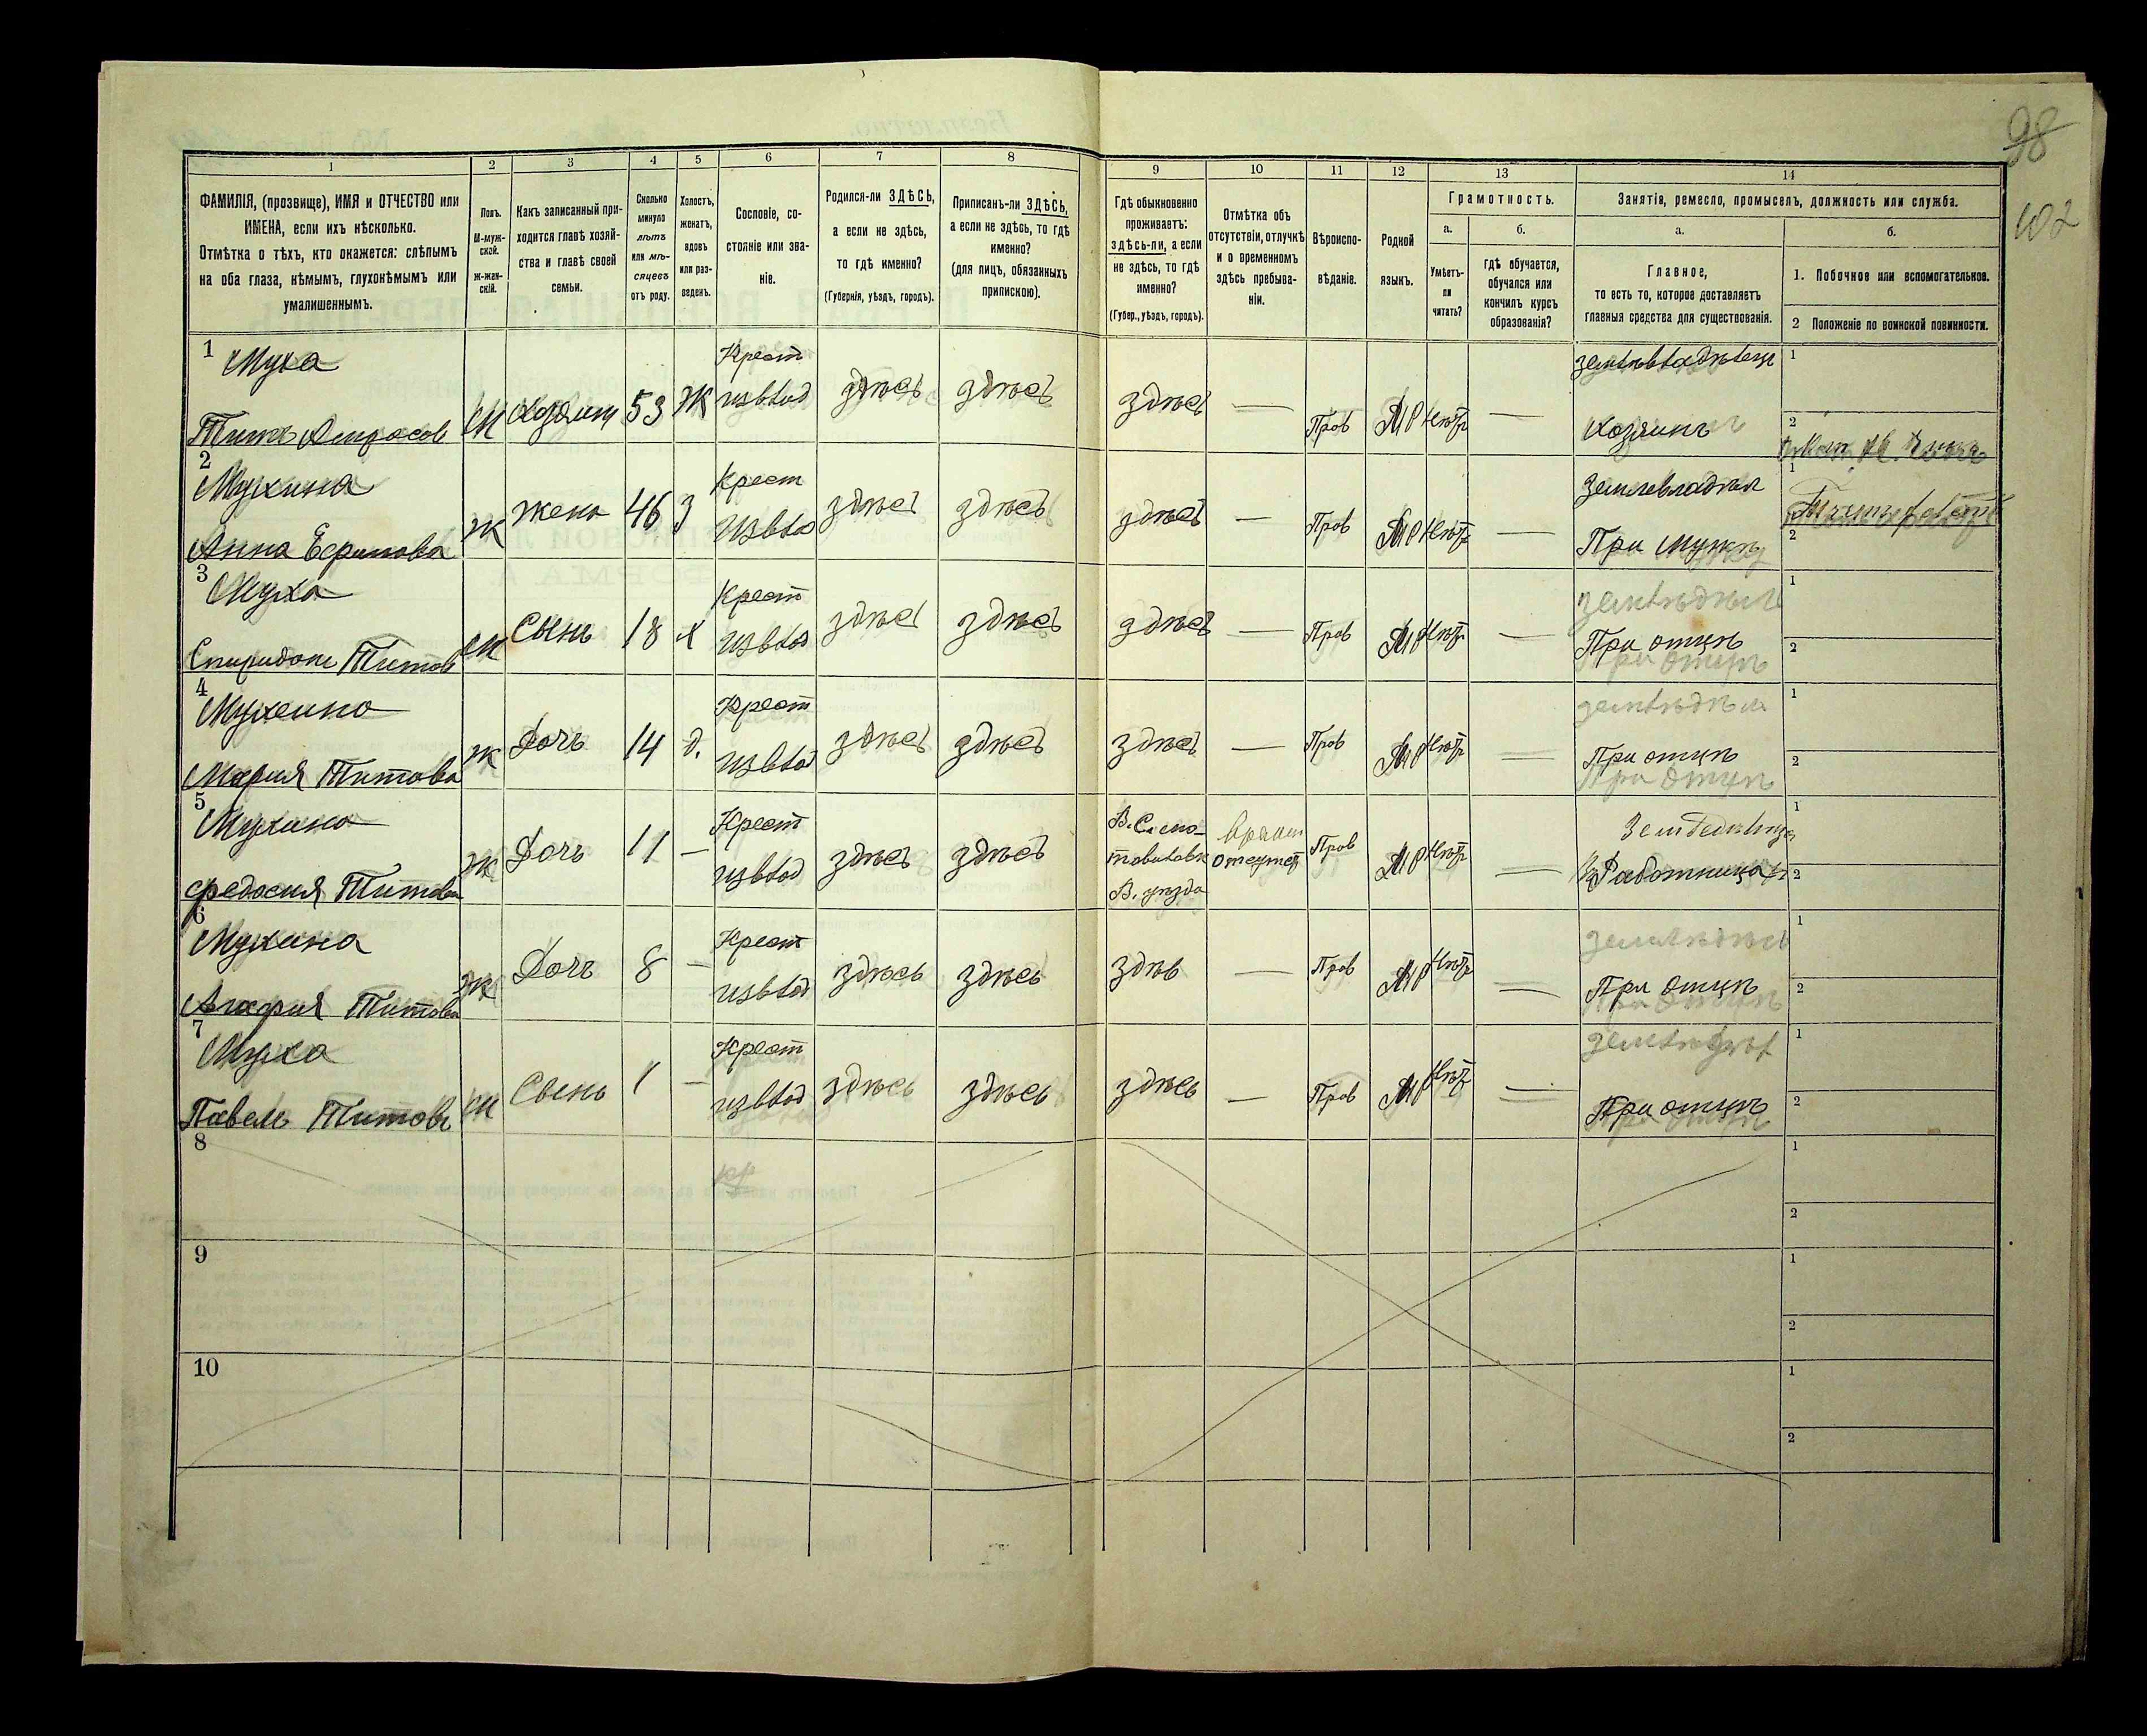 98
102
1
2
3
4
5
6
7
8
9
10
11
12
13
14
ФАМИЛІЯ, (прозвище), ИМЯ и ОТЧЕСТВО или
ИМЕНА, если ихъ нѣсколько.
Отмѣтка о тѣхъ, кто окажется: слѣпымъ
на оба глаза, нѣмымъ, глухонѣмымъ или
умалишеннымъ.
Полъ.
М-муж-
ской.
Ж-жен-
скій.
Какъ записанный при-
ходится главѣ хозяй-
ства и главѣ своей
семьи.
Сколько
минуло
лѣтъ
или мѣ-
сяцевъ
отъ роду.
Холостъ,
женатъ,
вдовъ
или раз-
веденъ.
Сословіе, со-
стояніе или зва-
ніе.
Родился-ли ЗДѢСЬ,
а если не здѣсь,
то гдѣ именно?
(Губернія, уѣздъ, городъ).
Приписанъ-ли ЗДѢСЬ,
а если не здѣсь, то гдѣ
именно?
(для лицъ, обязанныхъ
припискою).
Гдѣ обыкновенно
проживаетъ:
здѣсь-ли, а если
не здѣсь, то гдѣ
именно?
(Губер., уѣздъ, городъ).
Отмѣтка объ
отсутствіи, отлучкѣ
и о временномъ
здѣсь пребыва-
ніи.
Вѣроиспо-
вѣданіе.
Родной
языкъ.
Грамотность.
а.
Умѣетъ-
ли
читать?
б.
гдѣ обучается,
обучался или
кончилъ курсъ
образованія?
Занятія, ремесло, промыселъ, должность или служба.
а.
Главное,
то есть то, которое доставляетъ
главныя средства для существованія.
б.
1. Побочное или вспомогательное.
2 Положеніе по воинской повинности.
1
Муха
Титъ
М
Хозяин
53
Ж
Крест
из влад
здѣсь
здѣсь
здѣсь
—
Пров
МР
Нѣтъ
—
землевладѣлец
Хозяинъ
1
2
2
Мухина
Анна Ефимова
Ж
Жена
46
З
Крест
из вла
здѣсь
здѣсь
здѣсь
—
Пров
МР
Нѣтъ
—
Землевладѣл
При мужѣ
1
2
3
Муха
Спиридонъ Титов
М
Сынъ
18
х
Крест
из влад
здѣсь
здѣсь
здѣсь
—
Пров
МР
Нѣтъ
—
земледѣл
При отцѣ
1
2
4
Мухина
Мария Титова
Ж
Дочь
14
д.
Крест
из влад
здѣсь
здѣсь
здѣсь
—
Пров
МР
Нѣтъ
—
земледѣл
При отцѣ
1
2
5
Мухина
Федосия Титова
Ж
Дочь
11
—
Крест
из влад
здѣсь
здѣсь
В. уѣзда
Пров
МР
Нѣтъ
—
Работница
1
2
6
Мухина
Титова
Ж
Дочь
8
—
Крест
из влад
здѣсь
здѣсь
здѣс
—
Пров
МР
Нѣтъ
—
земледѣл
При отцѣ
1
2
7
Муха
Павелъ Титовъ
М
Сынь
1
—
Крест
из влад
здѣсь
здѣсь
здѣсь
—
Пров
МР
Нѣтъ
—
При отцѣ
1
2
8
кр
1
2
9
1
2
10
1
2